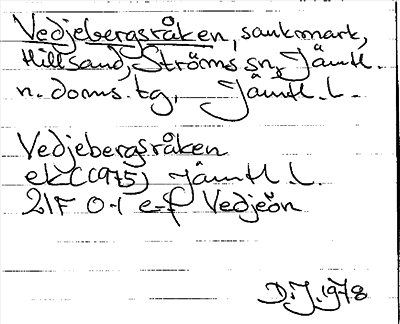 Vedjebergsråken, sankmark,
Hillsand, Ströms sn, Jämtl.
n. doms. tg, Jämtl. L.
Vedjebergsråken
ek (1975) Jämtl. L.
21F 0-1 e-f Vedjeön
D.J. 1978